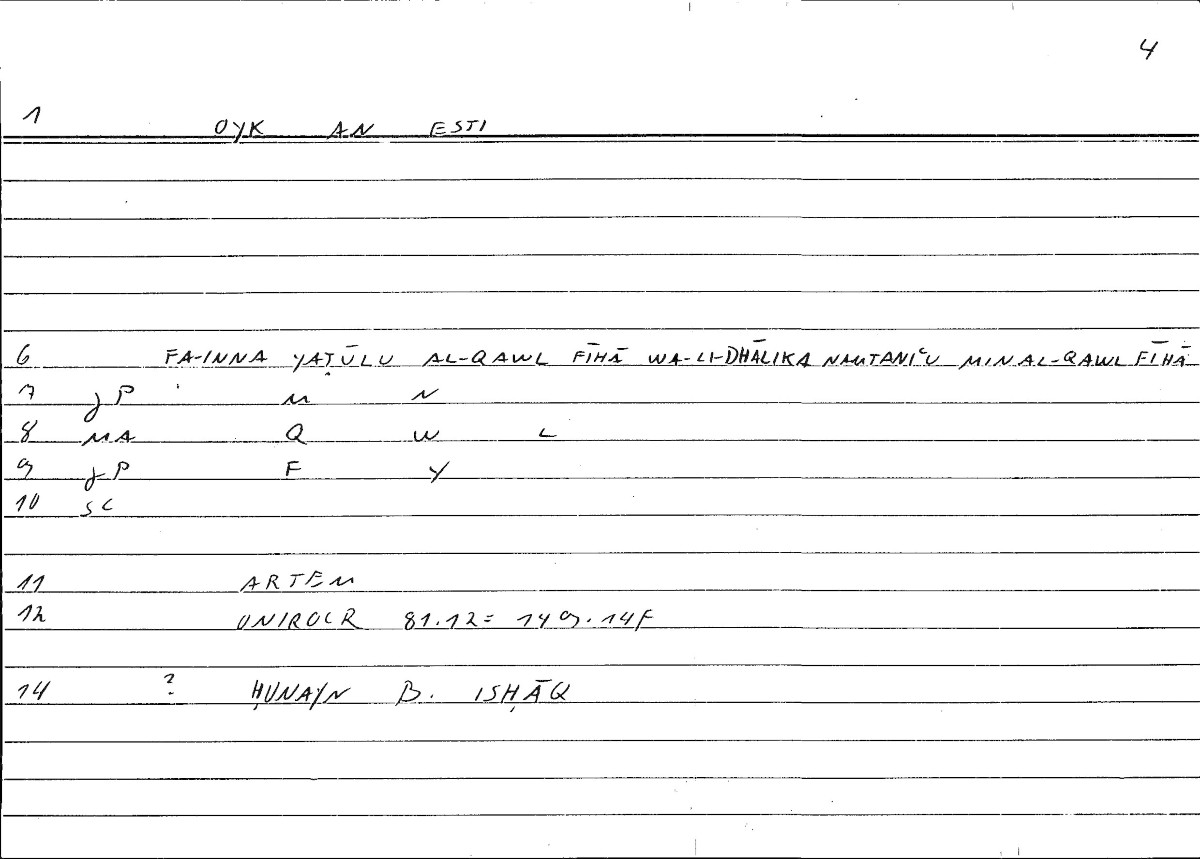 4
1 OYK AN ESTI
6 FA-INNA YAṬŪLU AL-QAWL FĪHĀ WA-LI-DHĀLIKA NAMTANIʿU MIN AL-QAWL FĪHĀ
7 JP M N
8 MA Q W L
9 JP F Y
10 SC
11 ARTEM
12 ONIROCR 81.12 = 149.14F
14 ? ḤUNAYN B. ISḤĀQ